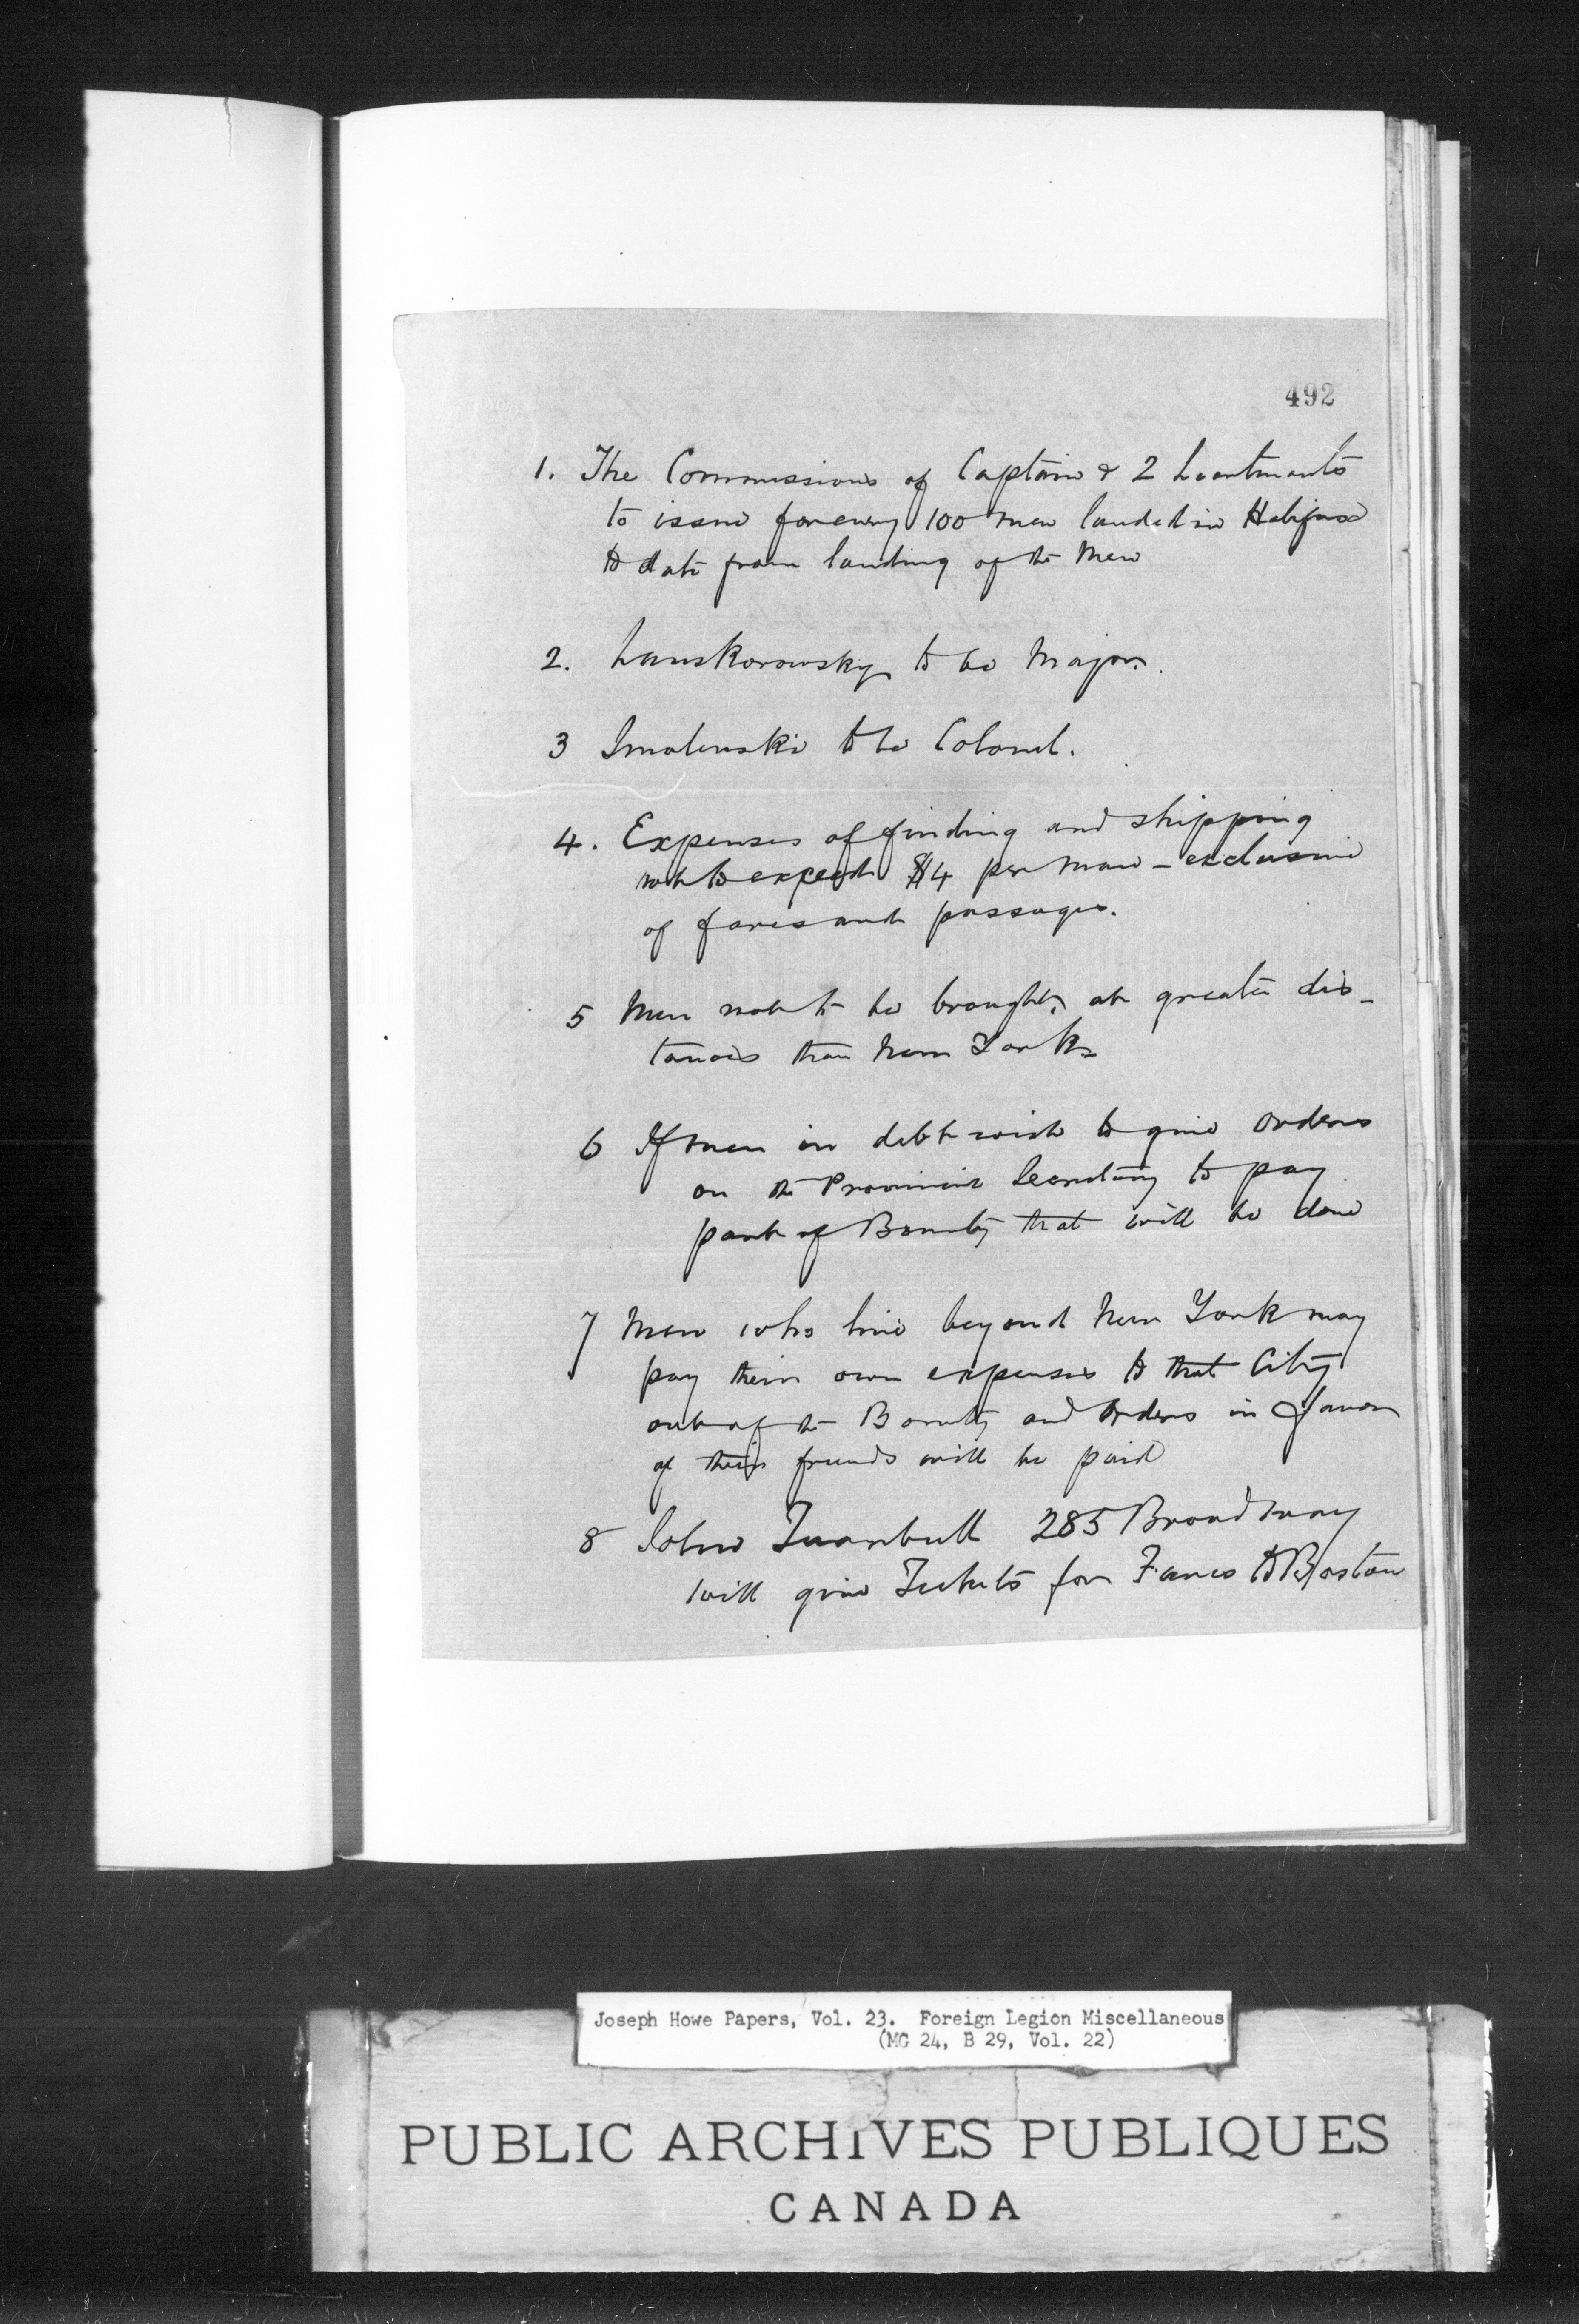 492
1. The Commissions of Captain & 2 Lieutenants
to issue for every 100 men landed in Halifax
to date from landing of the Men
2. Lanskorowsky to be Major.
3 Smolenski to be Colonel.
4. Expenses of finding and shipping
not to exceed $4 per man - exclusive
of fares and passages.
5 Men not to be brought, at greater dis-
tances than New York
6 If men in debt wish to give orders
on the Provincial Secretary to pay
part of Bounty that will be done
7 Men who live beyond New York may
pay their own expenses to that City
out of the Bounty and orders in favor
of their friends will be paid
8 John Turnbull 285 Broadway
will give Tickets for Fares to Boston
Joseph Howe Papers, Vol. 23. Foreign Legion Miscellaneous
(MG 24, B 29, Vol. 22)
PUBLIC ARCHIVES PUBLIQUES
CANADA